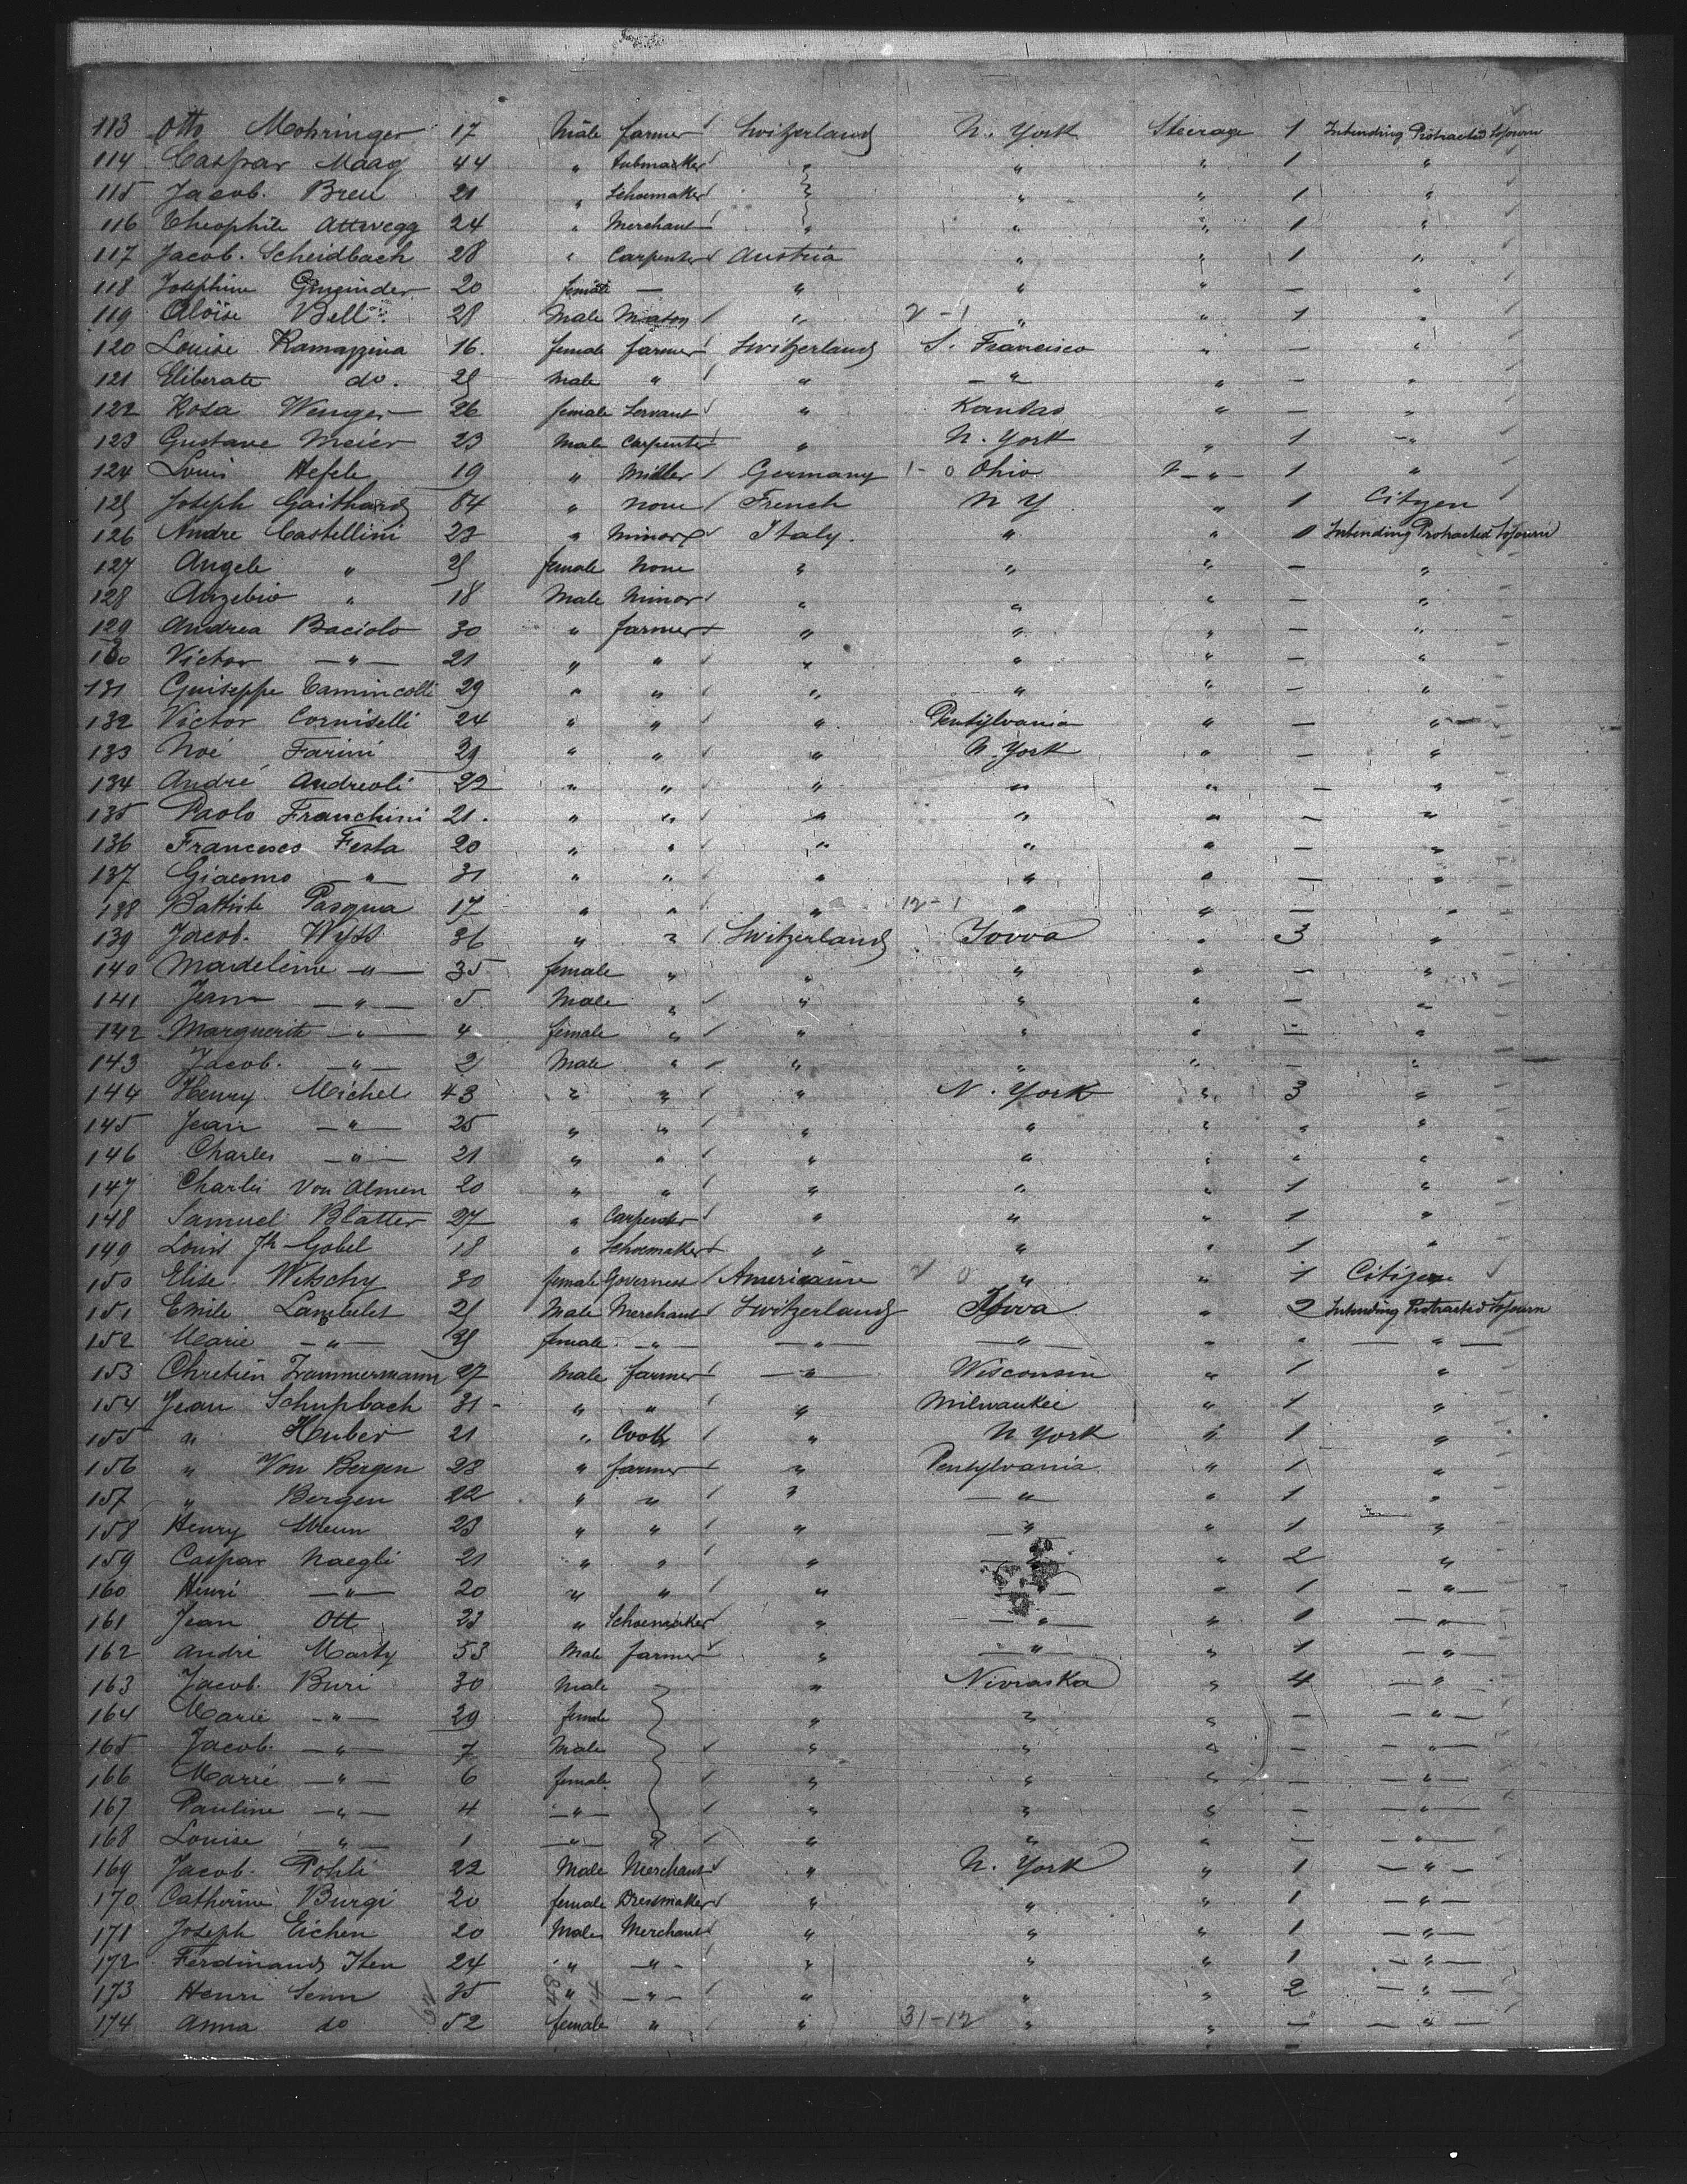 113 Otto Mohringer 17 Male farmer Switzerland N. York Steerage 1 Intending Protracted Sojourn
114 Caspar Maag 44 " " " " 1 "
115 Jacob. Breu 21 " Schoemaker " " 1 "
116 Theophile Attwegg 24 " Merchant " " " 1 "
117 Jacob. Scheidbach 28 " Carpenter Austria " " 1 "
118 Josephine 20 female — " " " — "
119 Aloïse Bell 28 Male Mason " 2-1 " " 1 "
120 Louise Ramazzina 16. female farmer Switzerland S. Francisco " — "
121 Eliberate do. 25 Male " " — " " — "
122 Rosa Wenger 26 female Servant " Kansas " — "
123 Gustave Meier 23 Male Carpenter " N. York " 1 — "
124 Louis Hefele 19 " Miller Germany 1-0 Ohio 2 — " — 1 "
125 Joseph Gaithard 54 " none French N Y " 1 Citizen
126 Andre Castellini 22 " Minor Italy. " " 1 Intending Protracted Sojourn
127 Angele " 25 female None " " " — "
128 Anzebio " 18 Male Minor " " " — "
129 Andrea Baciolo 30 " farmer " " " — "
130 Victor — " — 21 " " " " " — "
131 Guiseppe Camincolli 29 " " " " " — "
132 Victor Corniselli 24 " " " Pensylvania " — "
133 Noé Farini 29 " " " N. York " — "
134 André Andreoli 22 " " " " " — "
135 Paolo Franchini 21. " " " " " — "
136 Francesco Festa 20 " " " " " — "
137 Giacomo — " — 31 " " " " " — "
138 Battiste Pasqua 17 " " " 12-1 " " — "
139 Jacob. Wyss 36 " " Switzerland Iowa " 3 "
140 Madeleine — " — 35 female " " " " — "
141 Jean — " — 5 Male " " " " — "
142 Marguerite — " — 4 female " " " " — "
143 Jacob. — " — 2 Male " " " " — "
144 Henry Michel 43 " " " N. York " 3 "
145 Jean — " — 25 " " " " " " "
146 Charles — " — 21 " " " " " " "
147 Charles Von Almen 20 " " " " " 1 "
148 Samuel Blatter 27 " Carpenter " " " 1 "
149 Louis Jh Gobel 18 " Schoemaker " " " 1 "
150 Elise Witschy 30 female Governess Americaine 2 0 " " 1 Citizen
151 Emile Lambelet 25 Male Merchant Switzerland Iowa " 2 Intending Protracted Sojourn
152 Marie — " — 25 female — " — — " — — " — " " — " —
153 Chretien Zammermann 27 Male farmer — " — Wisconsin " 1 "
154 Jean Schupbach 31 " " " Milwaukee " 1 "
155 " Huber 21 " Cook " N York " 1 "
156 " Von Bergen 28 " farmer " Pensylvania " 1 "
157 " Bergen 22 " " " — " — " 1 "
158 Henry Streun 23 " " " — " — " 1 "
159 Caspar Naegli 21 " " " " 2 "
160 Henri — " — 20 " " " " 1 — " —
161 Jean Ott 23 " Schoemaker " — " — " 1 — " —
162 André Marty 53 Male farmer " — " — " 1 — " —
163 Jacob. Buri 30 Male " Nivraska " 4 — " —
164 Marie — " — 29 female " " " — — " —
165 Jacob. — " — 7 Male " " " — — " —
166 Marie — " — 6 female " " " — — " —
167 Pauline — " — 4 — " — " " " — — " —
168 Louise — " — 1 — " — " " " " — — " —
169 Jacob. Pohli 22 Male Merchant " N. York " 1 — " —
170 Catherine Burgi 20 female Dressmaker " " " 1 — " —
171 Joseph Eichen 20 Male Merchant " " " 1 — " —
172 Ferdinand Iten 24 " — " — " " " 1 — " —
173 Henri Senn 35 " — " — " " " 2 — " —
174 Anna do 52 female " " 31-12 " " — — " —